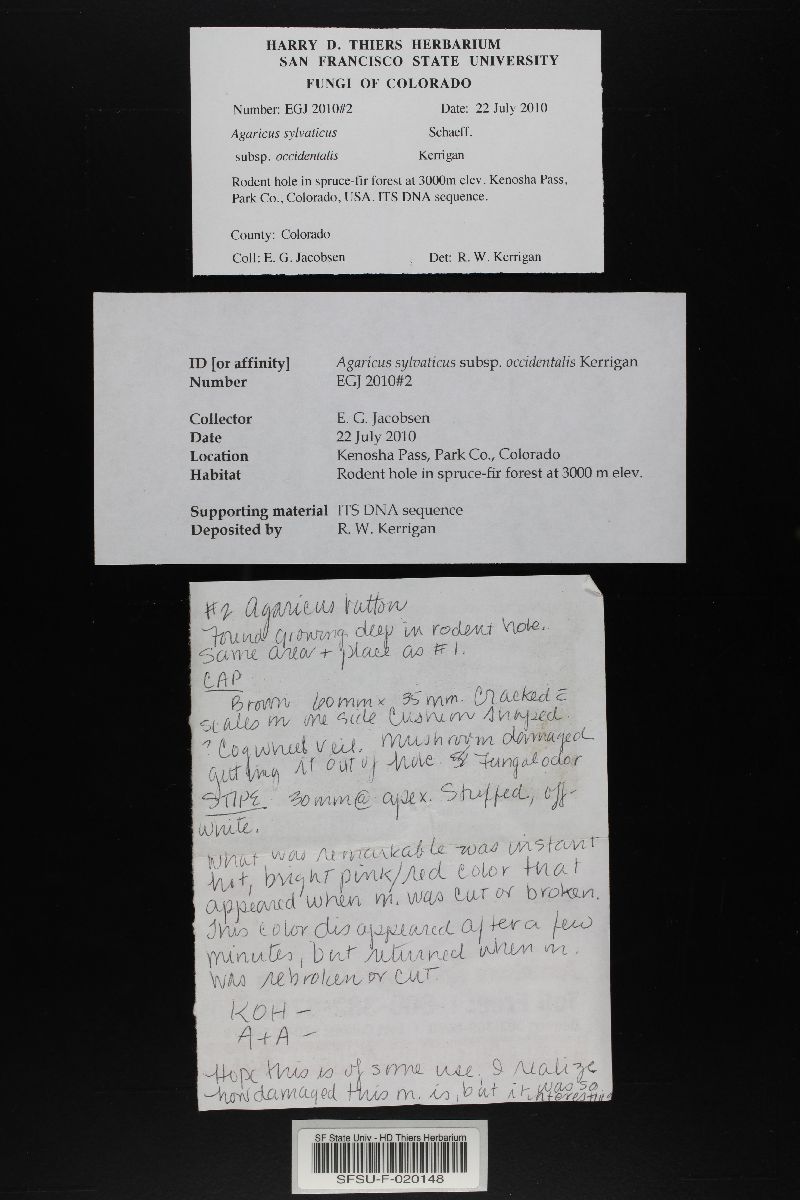 HARRY D. THIERS HERBARIUM
SAN FRANCISCO STATE UNIVERSITY
FUNGI OF COLORADO
Number: EGJ 2010#2 Date: 22 July 2010
Agaricus sylvaticus Schaeff.
subsp. occidentalis Kerrigan
Rodent hole in spruce-fir forest at 3000m elev. Kenosha Pass,
Park Co., Colorado, USA. ITS DNA sequence.
County: Colorado
Coll: E. G. Jacobsen Det: R. W. Kerrigan
ID [or affinity] Agaricus sylvaticus subsp. occidentalis Kerrigan
Number EGJ 2010#2
Collector E. G. Jacobsen
Date 22 July 2010
Location Kenosha Pass, Park Co., Colorado
Habitat Rodent hole in spruce-fir forest at 3000 m elev.
Supporting material ITS DNA sequence
Deposited by R. W. Kerrigan
#2 Agaricus button
Found growing deep in rodent hole.
Same area + place as #1.
CAP
Brown 60mm x 35mm. Cracked
scales on one side Cushion shaped.
? Cogwheel veil. Mushroom damaged
getting it out of hole. Fungal odor
STIPE 30mm @ apex. Stuffed, off-
white.
What was remarkable was instant
hot, bright pink/red color that
appeared when m. was cut or broken.
This color disappeared after a few
minutes, but returned when m.
was rebroken or cut.
KOH -
A+A -
Hope this is of some use. I realize
how damaged this m. is, but it was so
interesting
SF State Univ - HD Thiers Herbarium
SFSU-F-020148